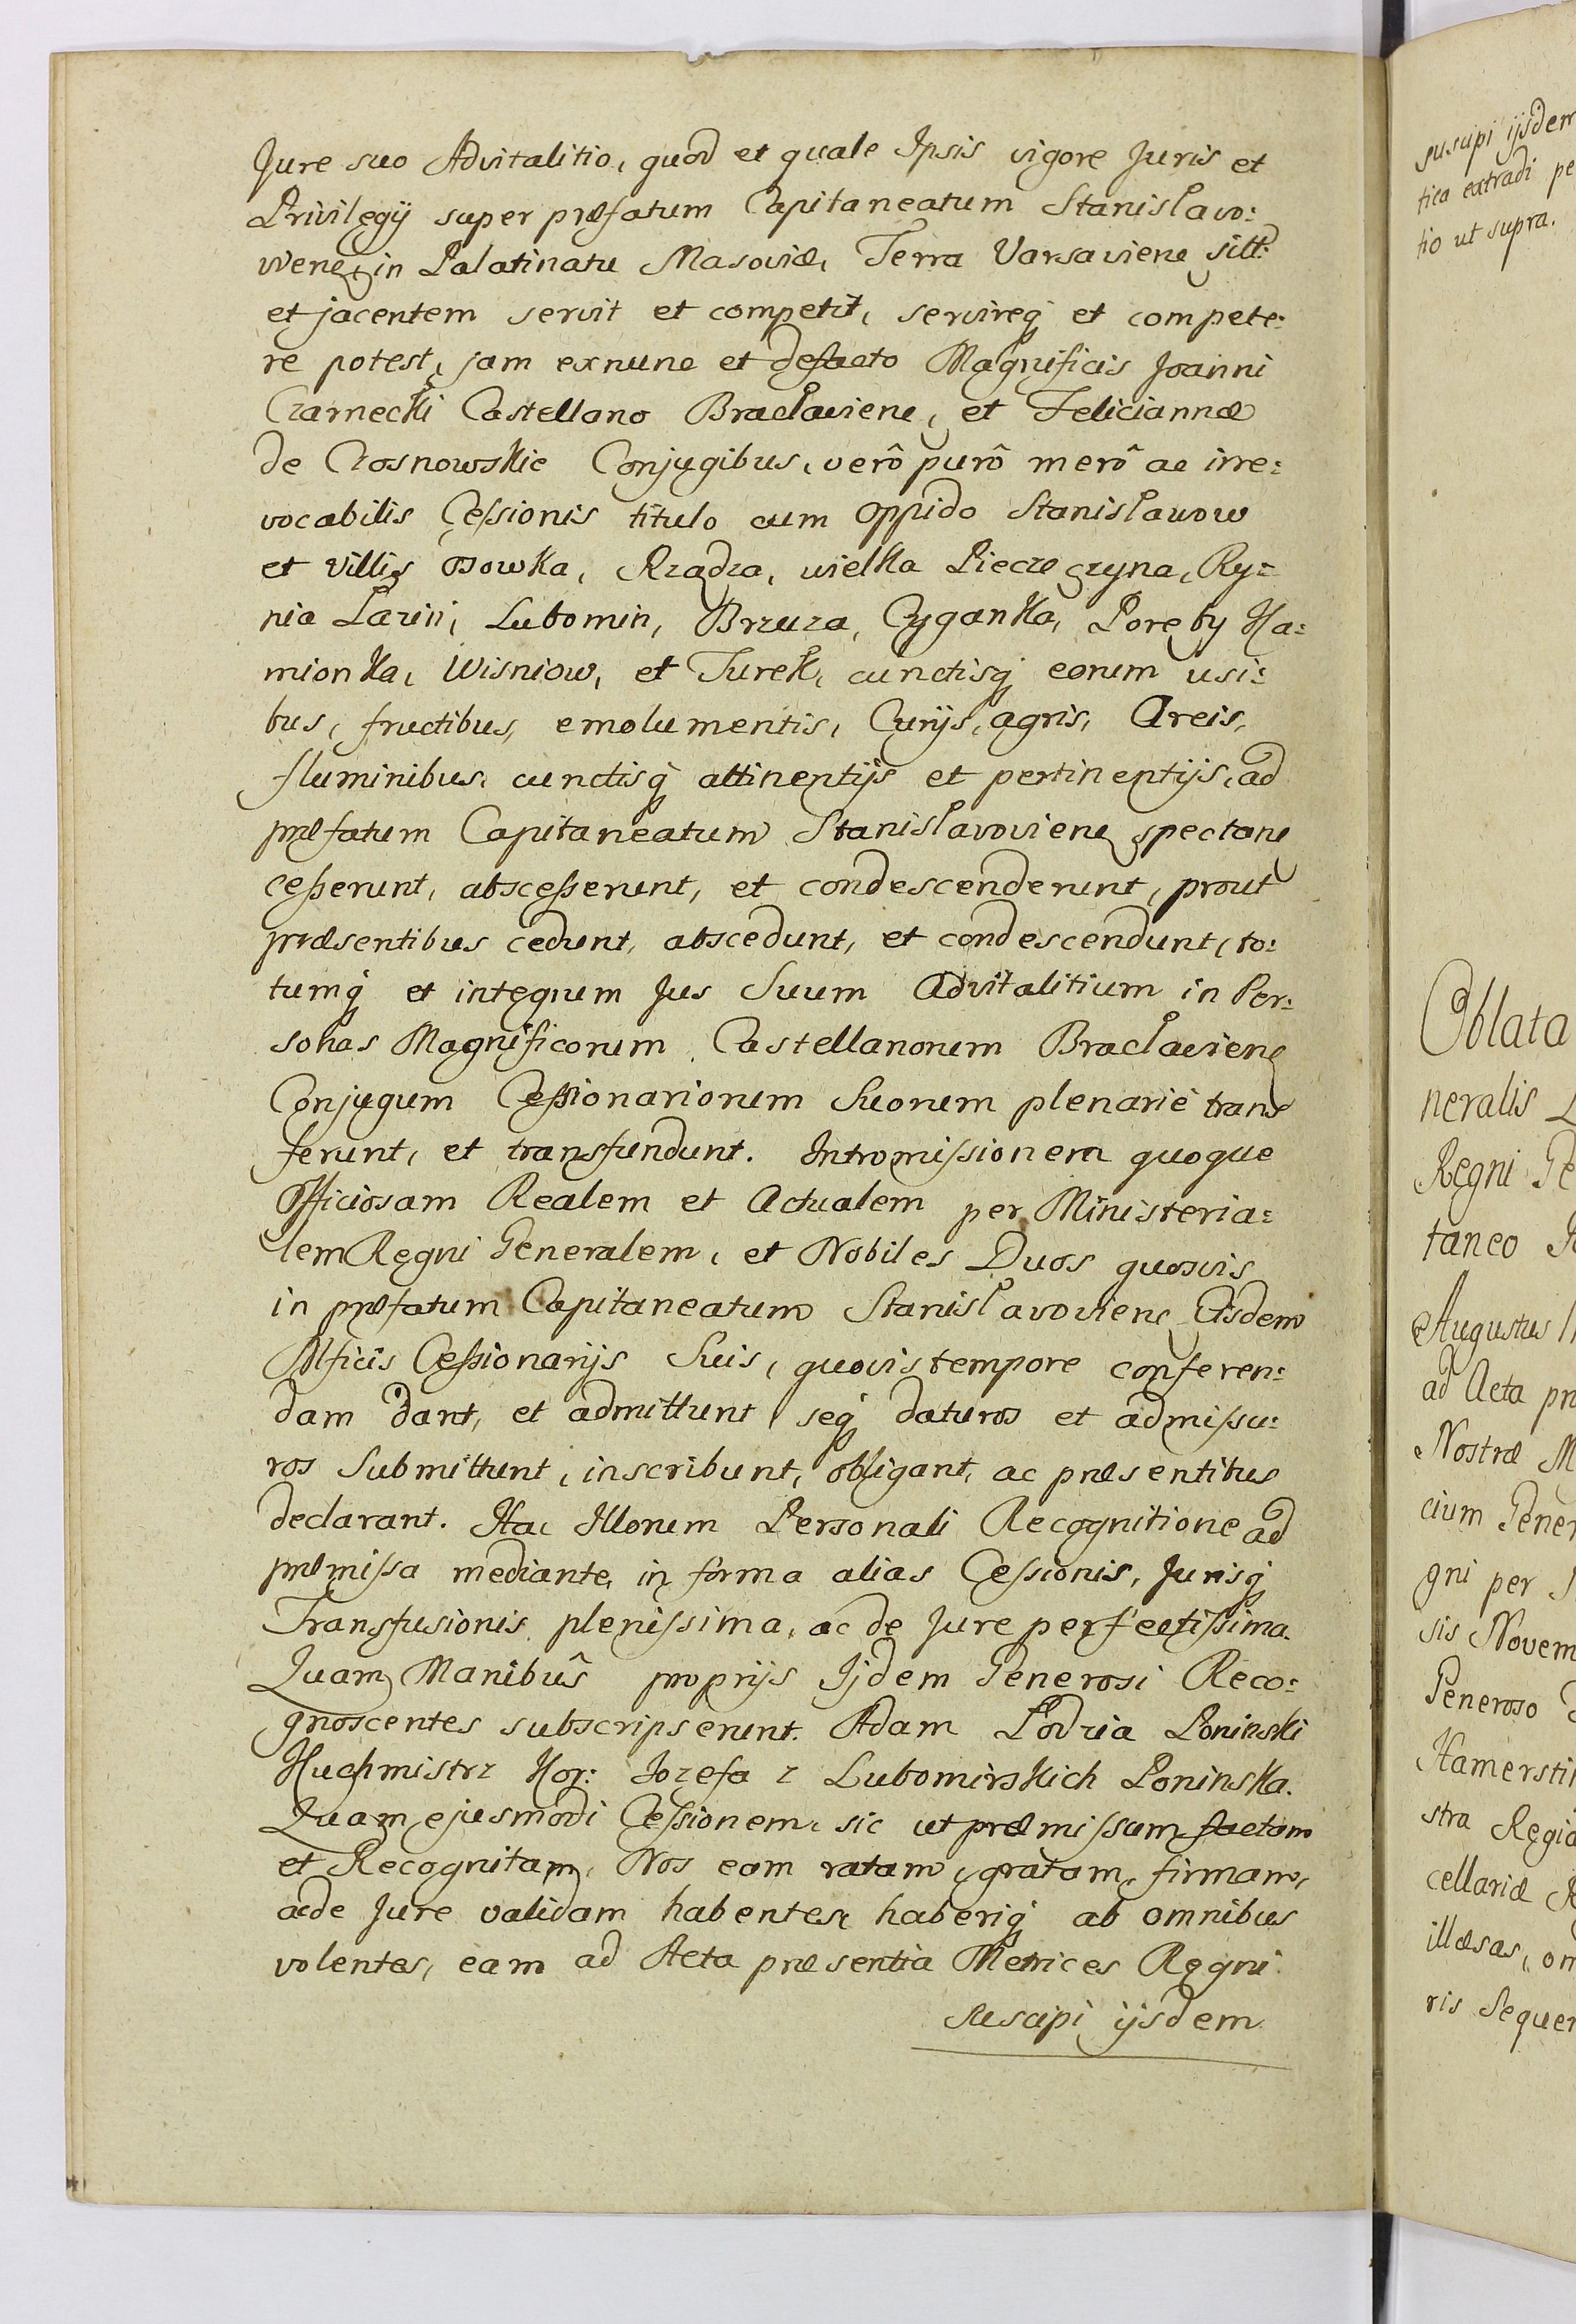 Jure suo Advitalitio, quod et quale Ipsis vigore Juris et
Privilegij super præfatum Capitaneatum Stanislavo:
viene in Palatinatu Masoviæ, Terra Varsaviene sitt:
et jacentem servit et competit, servireq et compete:
re potest, jam exnunc et defacto Magnificis Joanni
Czarnecki Castellano Bracłaviene, et Feliciannæ
de Czosnowskie Conjugibus, verô purô merô ac irre:
vocabilis Cessionis titulo cum Oppido Stanisławow
et Villis Ossowka, Rządza, wielka Pieczo
nia Łazin, Lubomin, Brzuza, Cyganka, Poręby Ka:
mionka, Wisniow, et Turek, cunctisq eorum usi:
bus, fructibus, emolumentis, Curijs, agris, Areis,
fluminibus, cunctisq attinentijs et pertinentijs, ad
præfatum Capitaneatum Stanisłavoviene spectan
cesserunt, abscesserunt, et condescenderunt, prout
præsentibus cedunt, abscedunt, et condescendunt, to:
tumq et integrum Jus Suum Advitalitium in Per:
sonas Magnificorum Castellanorum Bracłaviene
Conjugum Cessionariorum Suorum plenariè trans
ferunt, et transfundunt. Intromissionem quoque
Officiosam Realem et Actualem per Ministeria:
lem Regni Generalem, et Nobiles Duos quosvis
in præfatum Capitaneatum Stanisłavoviene Eisdem
Mficis Cessionarijs Suis, quovis tempore conferen:
dam dant, et admittunt, seq daturos et admissu:
ros Submittunt, inscribunt, obligant, ac præsentibus
declarant. Hac Illorum Personali Recognitione ad
præmissa mediante, in forma alias Cessionis, Jurisq
Transfusionis plenissima, ac de Jure perfectissima.
Quam Manibus proprijs Ijdem Generosi Reco:
gnoscentes subscripserunt. Adam Łodzia Poninski
Kuchmistrz Kor: Jozefa z Lubomirskich Poninska.
Quam ejusmodi Cessionem, sic ut præmissum factam
et Recognitam, Nos eam ratam, gratam, firmam,
acde Jure validam habentes, haberiq ab omnibus
volentes, eam ad Acta præsentia Metrices Regni
suscipi ijsdem
suscipi ijsdem
tica extradi pe
tio ut supra.
Oblata
neralis
Regni Ge
taneo
Augustus
ad Acta pr
Nostræ M
cium Gener
gni per
sis Novem
Generoso
Hamerstin
stra Regia
cellariæ
illæsas, om
ris Sequen